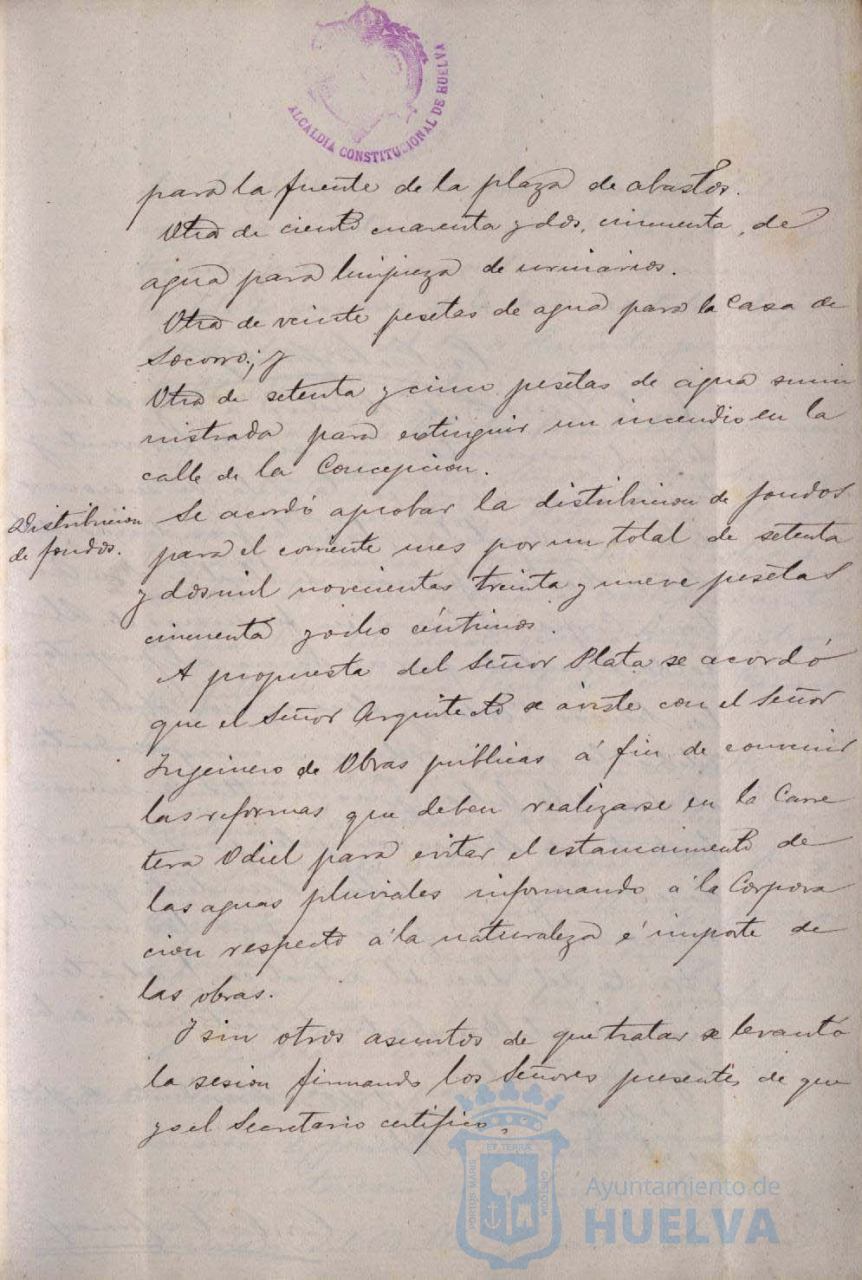 ALCALDÍA CONSTITUCIONAL DE HUELVA
para la fuente de la plaza de abastos.
Otra de ciento cuarenta y dos, cincuenta, de
agua para limpieza de urinarios.
Otra de veinte pesetas de agua para la Casa de
Socorro; y
Otra de setenta y cinco pesetas de agua sumi
nistrada para extinguir un incendio en la
calle de la Concepcion.
Distribucion
de fondos.
Se acordó aprobar la distribucion de fondos
para el corriente mes por un total de setenta
y dos mil novecientas treinta y nueve pesetas
cincuenta y ocho céntimos.
A propuesta del Señor Plata se acordó
que el Señor Arquitecto se aviste con el Señor
Ingeniero de Obras públicas á fin de convenir
las reformas que deben realizarse en la Carre
tera Odiel para evitar el estancamiento de
las aguas pluviales informando á la Corpora
cion respecto á la naturaleza é importe de
las obras.
Y sin otros asuntos de que tratar se levantó
la sesion firmando los Señores presentes, de que
yo el Secretario certifico.
PORTUS MARIS
ET TERRÆ
CUSTODIA
Ayuntamiento de
HUELVA